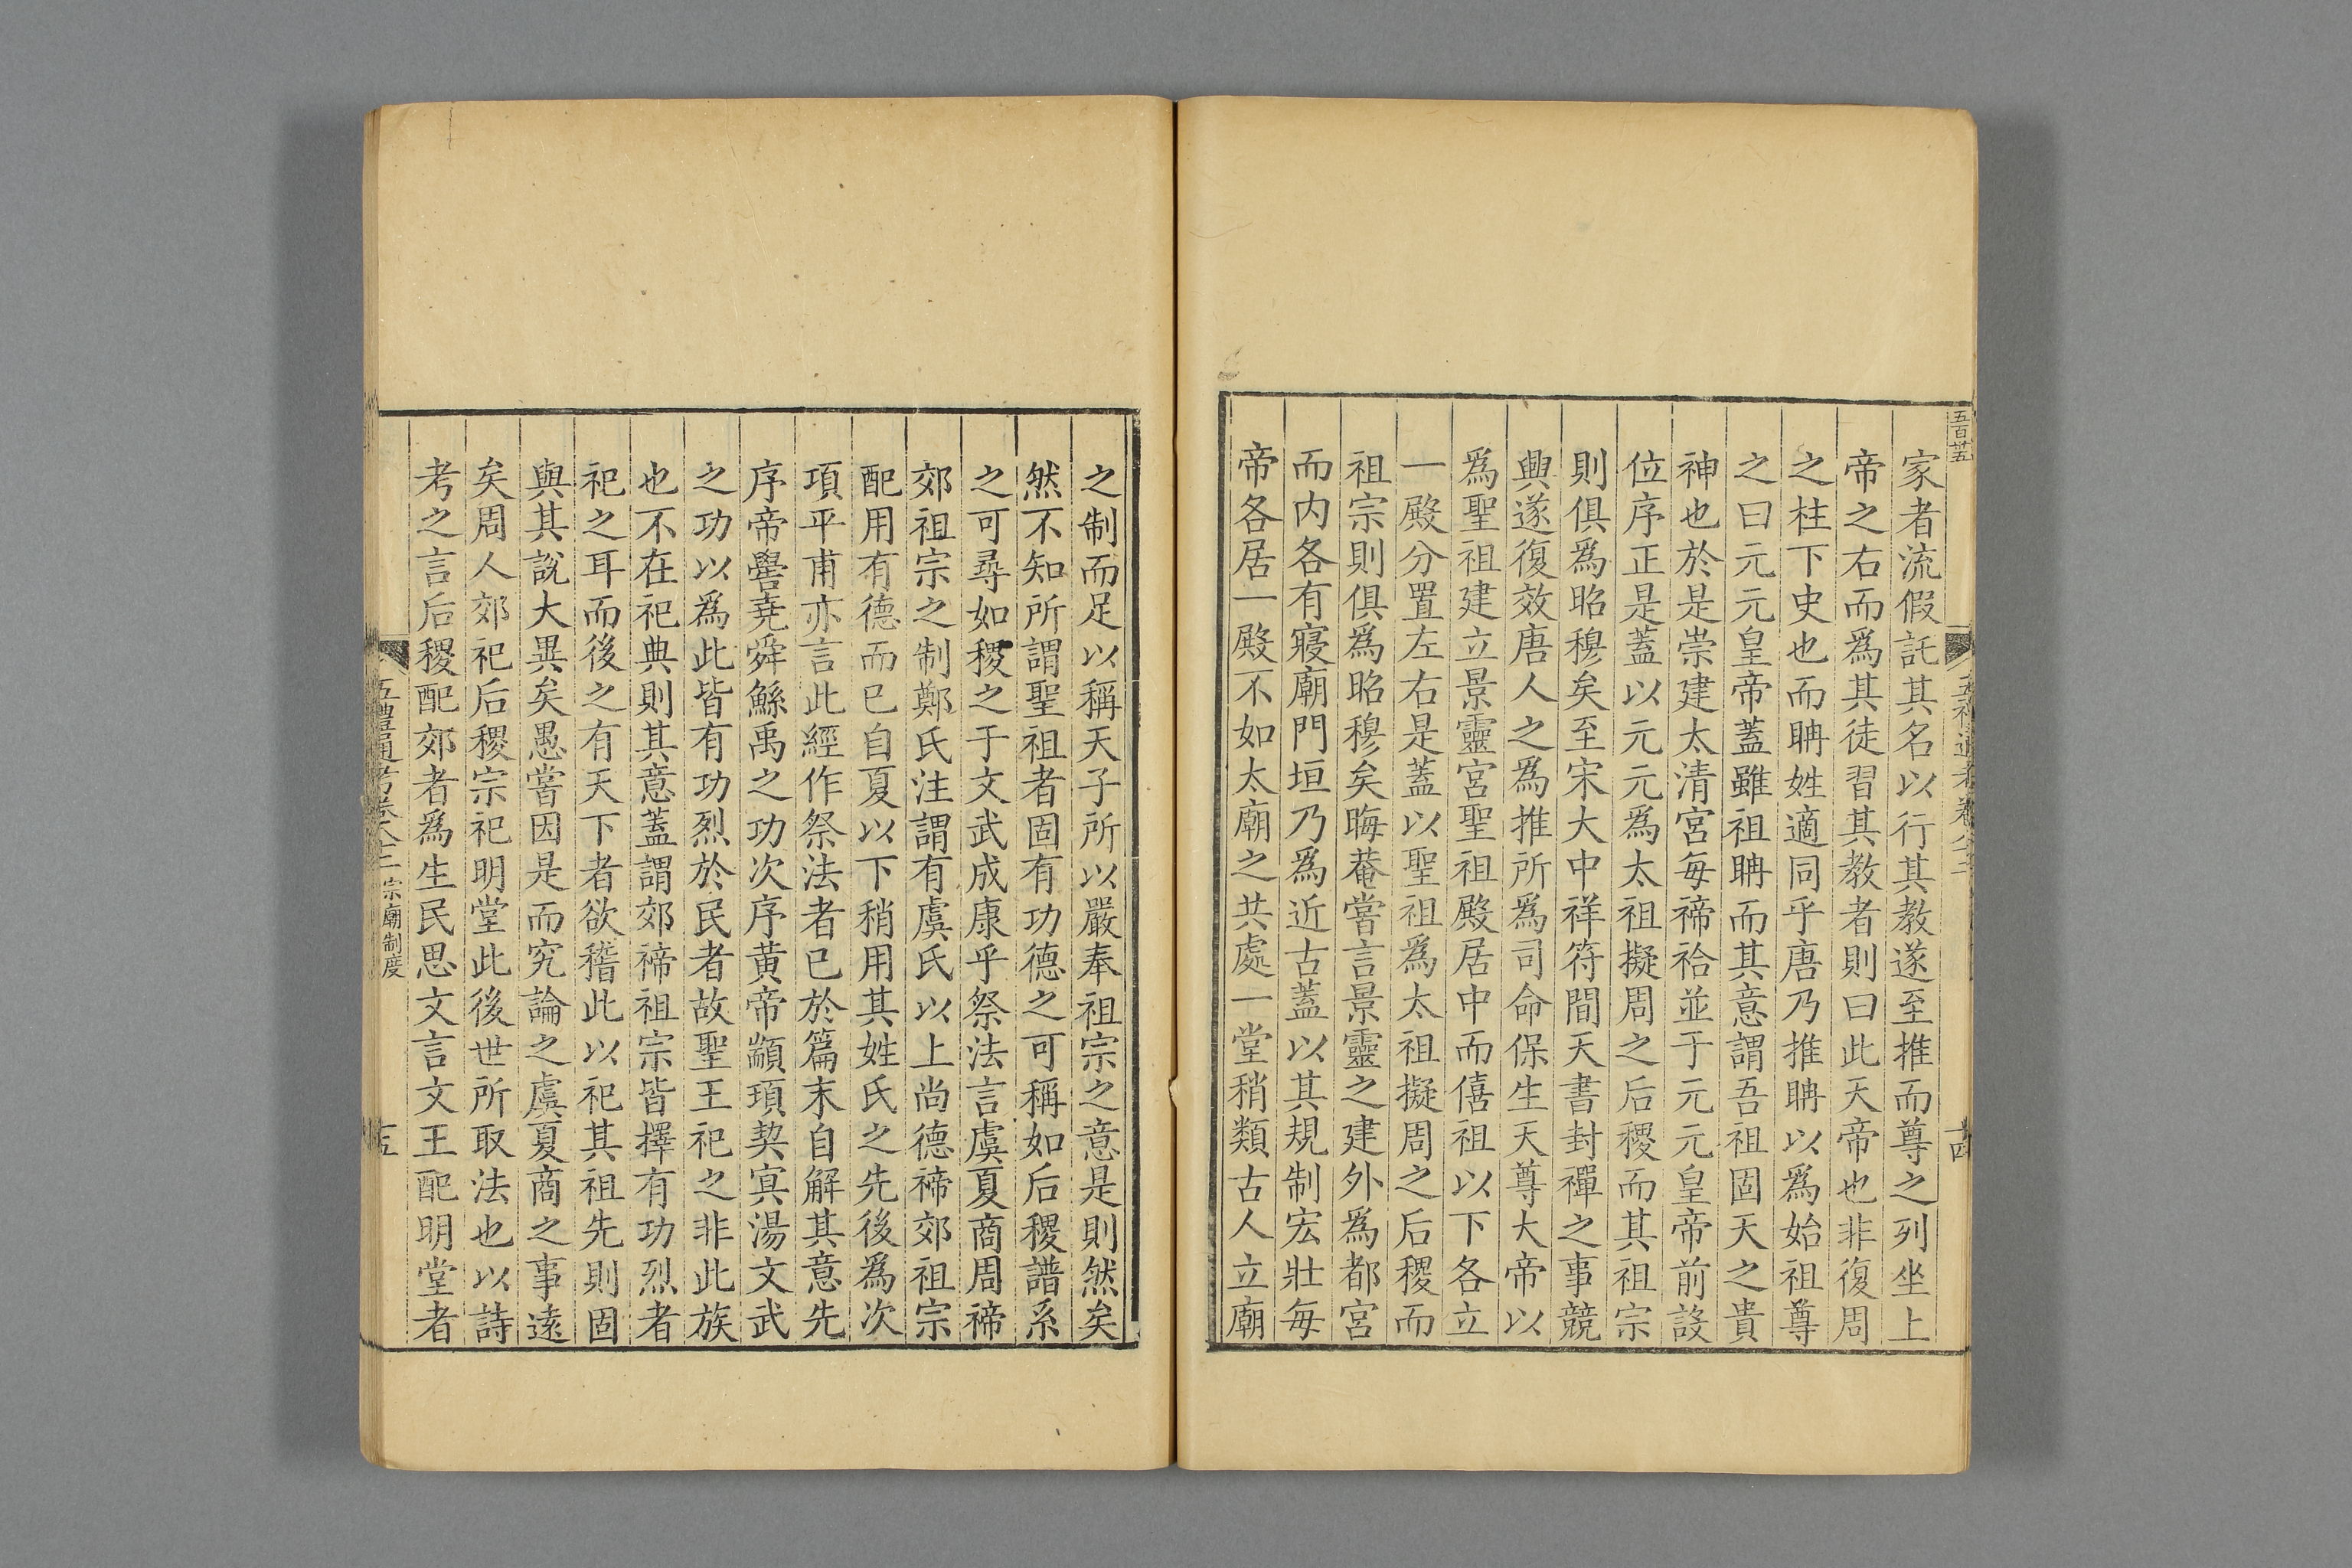 五百廿五
家者流假託其名以行其教遂至推而尊之列坐上
帝之右而爲其徒習其教者則曰此天帝也非復周
之柱下史也而聃姓適同乎唐乃推聃以爲始祖尊
之曰元元皇帝蓋雖祖聃而其意謂吾祖固天之貴
神也於是崇建太清宮每禘祫並于元元皇帝前設
位序正是蓋以元元爲太祖擬周之后稷而其祖宗
則俱爲昭穆矣至宋大中祥符間天書封禪之事競
興遂復效唐人之爲推所爲司命保生天尊大帝以
爲聖祖建立景靈宮聖祖殿居中而僖祖以下各立
一殿分置左右是蓋以聖祖爲太祖擬周之后稷而
祖宗則俱爲昭穆矣晦菴嘗言景靈之建外爲都宮
而内各有寢廟門垣乃爲近古蓋以其規制宏壯每
帝各居一殿不如太廟之共處一堂稍類古人立廟
之制而足以稱天子所以嚴奉祖宗之意是則然矣
然不知所謂聖祖者固有功德之可稱如后稷譜系
之可尋如稷之于文武成康乎祭法言虞夏商周禘
郊祖宗之制鄭氏注謂有虞氏以上尚德禘郊祖宗
配用有德而已自夏以下稍用其姓氏之先後爲次
項平甫亦言此經作祭法者已於篇末自解其意先
序帝嚳堯舜鯀禹之功次序黃帝顓頊契冥湯文武
之功以爲此皆有功烈於民者故聖王祀之非此族
也不在祀典則其意蓋謂郊禘祖宗皆擇有功烈者
祀之耳而後之有天下者欲稽此以祀其祖先則固
與其說大異矣愚嘗因是而究論之虞夏商之事遠
矣周人郊祀后稷宗祀明堂此後世所取法也以詩
考之言后稷配郊者爲生民思文言文王配明堂者
五禮通考卷八十二 宗廟制度
十五